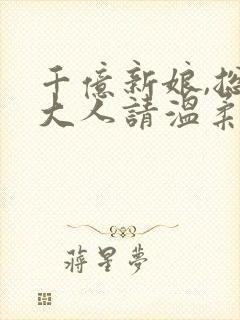 千億新娘,總
大人請溫柔
蔣星夢